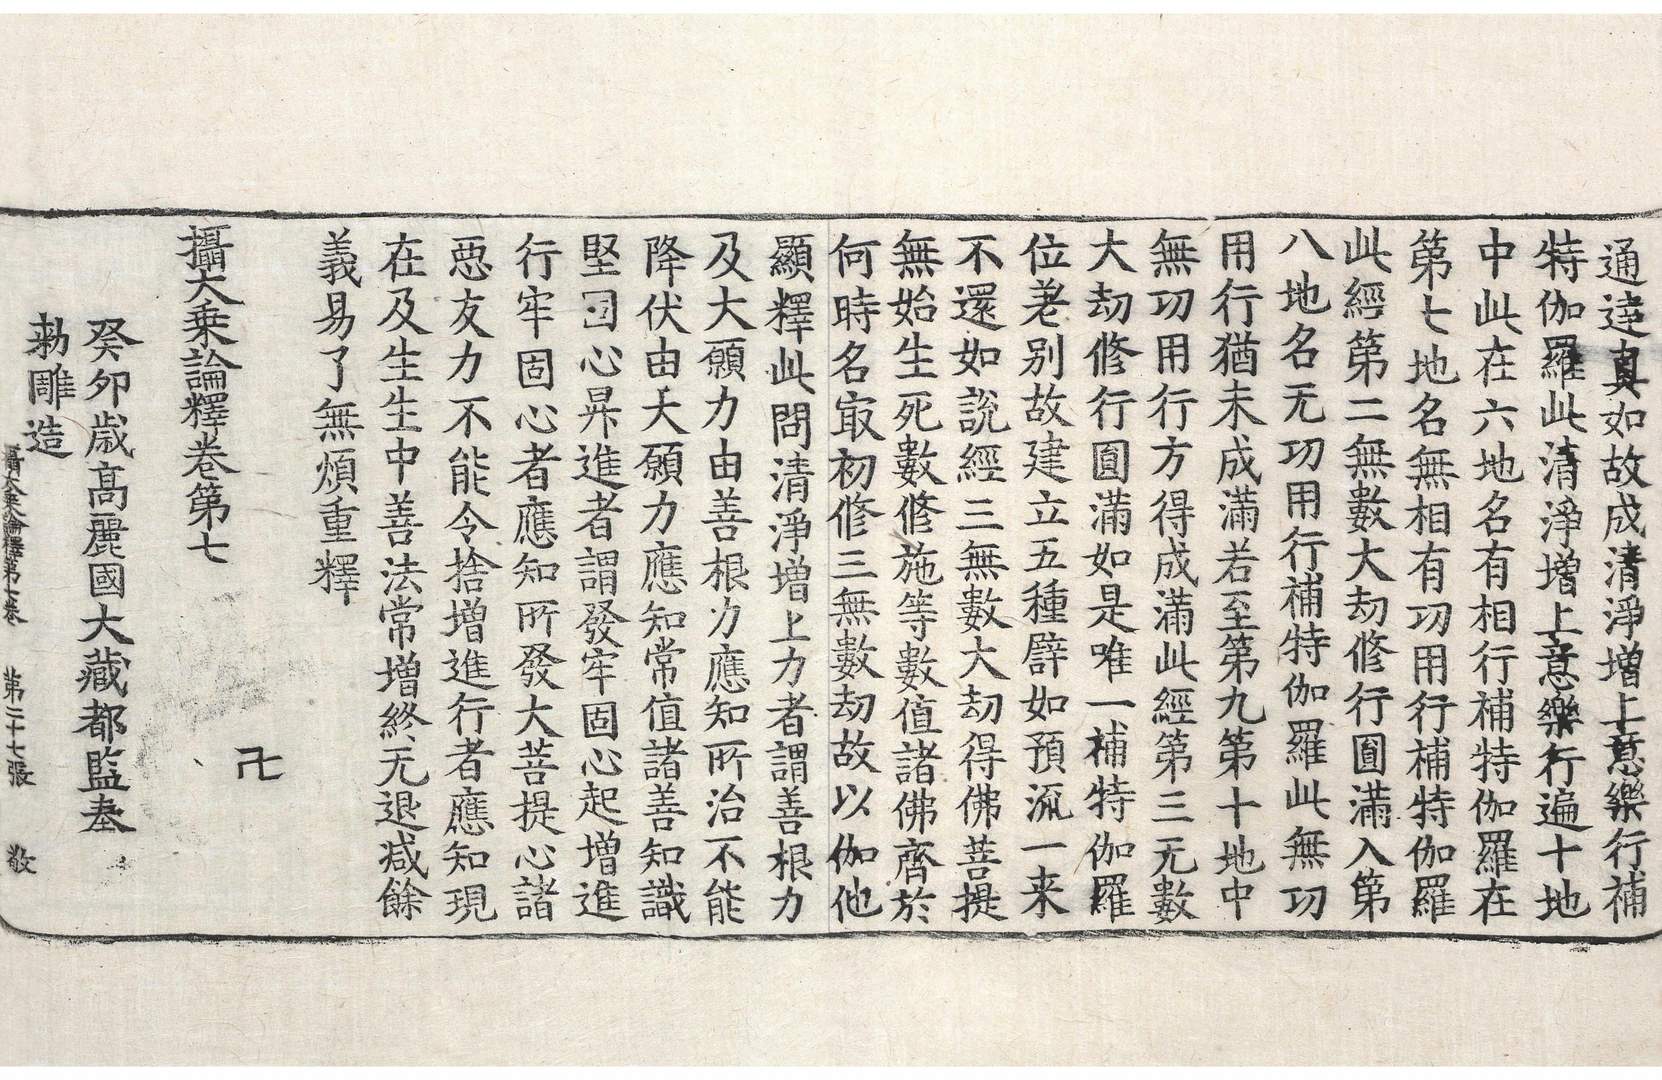 通達真如故成清淨增上意樂行補
特伽羅此清淨增上意樂行遍十地
中此在六地名有相行補特伽羅在
第七地名無相有功用行補特伽羅
此經第二無數大劫修行圓滿入第
八地名无功用行補特伽羅此無功
用行猶未成滿若至第九第十地中
無功用行方得成滿此經第三无數
大劫修行圓滿如是唯一補特伽羅
位差别故建立五種譬如預流一来
不還如說經三無數大劫得佛菩提
無始生死數修施等數值諸佛齊於
何時名冣初修三無數劫故以伽他
顯釋此問清淨增上力者謂善根力
及大願力由善根力應知所治不能
降伏由大願力應知常值諸善知識
堅固心昇進者謂發牢固心起增進
行牢固心者應知所發大菩提心諸
惡友力不能令捨增進行者應知現
在及生生中善法常增終无退减餘
義易了無煩重釋
卍
攝大乗論釋卷第七
癸卯歲高麗國大藏都監奉
勅雕造
攝大乗論釋第七卷 第二十七張 敬